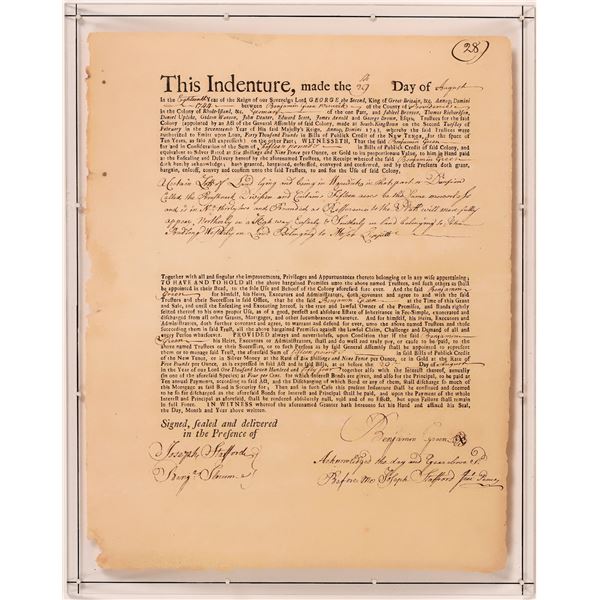 (28)
This Indenture, made the 29th Day of August
In the Eighteenth Year of the Reign of our Sovereign Lord GEORGE the Second, King of Great-Britain, &c. Annoq; Domini
1744 between Benjamin Green Warwick of the County of Providence
in the Colony of Rhode-Island, &c. Yeoman of the one Part, and Jahleel Brenton, Thomas Richardson,
Daniel Updike, Gideon Wanton, John Dexter, Edward Scott, James Arnold and George Brown, Esqrs; Trustees for the said
Colony (appointed by an Act of the General Assembly of said Colony, made at South-Kingstown on the Second Tuesday of
February in the Seventeenth Year of His said Majesty's Reign, Annoq; Domini 1743, whereby the said Trustees were
impowered to Emitt upon Loan, Forty Thousand Pounds in Bills of Publick Credit of the NEW TENOR, for the Space of
Ten Years, as said Act expresseth) on the other Part; WITNESSETH, That the said Benjamin Green
for and in Consideration of the Sum of Fifteen pounds in Bills of Publick Credit of said Colony, and
equivalent to Silver Bored at Six Shillings and Nine Pence per Ounce, or Gold to its proportionate Value, to him in Hand paid
at the Ensealing and Delivery hereof by the aforenamed Trustees, the Receipt whereof the said Benjamin Green
doth hereby acknowledge; hath granted, bargained, enfeoffed, conveyed and confirmed, and by these Presents doth grant,
bargain, enfeoff, convey and confirm unto the said Trustees, to and for the Use of said Colony.
A Certain Lott of Land lying and being in Warwick in that part
Called the Division and Contains Fifteen acres be the same more or less
and is in No. thirty two and Bounded as Refference to the Platt will more fully
appear, Northerly on a High way Easterly & Southerly on Land belonging to
Westerly on Land Belonging to Moses Lippitt
Together with all and singular the Improvements, Privileges and Appurtenances thereto belonging or in any wise appertaining;
TO HAVE AND TO HOLD all the above bargained Premises unto the above named Trustees, and such others as shall
be appointed in their Stead, to the sole Use and Behoof of the Colony aforesaid for ever. And the said Benjamin
Green for himself, his Heirs, Executors and Administrators, doth covenant and agree to and with the said
Trustees and their Successors in said Office, that he the said Benjamin Green at the Time of this Grant
and Sale, and until the Ensealing and Executing hereof, is the true and lawful Owner of the Premises, and stands rightly
seized thereof to his own proper Use, as of a good, perfect and absolute Estate of Inheritance in Fee-Simple, exonerated
and discharged from all other Grants, Mortgages, and other Incumbrances whatever. And for himself, his Heirs, Executors and
Administrators, doth further covenant and agree, to warrant and defend for ever, unto the above named Trustees and those
succeeding them in said Trust, all the above bargained Premises against the lawful Claim, Challenge and Demand of all and
every Person whatsoever. PROVIDED always and nevertheless, upon Condition that if the said Benjamin
Green his Heirs, Executors or Administrators, shall and do well and really pay, or cause to be paid, to the
above named Trustees or their Successors, or to such Persons as by said General Assembly shall be appointed to receive
them or to manage said Trust, the aforesaid Sum of Fifteen pounds in said Bills of Publick Credit
of the NEW TENOR, or in Silver Money at the Rate of Six Shillings and Nine Pence per Ounce, or in Gold at the Rate of
Five Pounds per Ounce, as is expressed in said Act, and in said Bills, at or before the 29 Day of August
in the Year of our Lord One Thousand Seven Hundred and Fifty four Together also with the Interest thereof, annually
for one of the aforesaid Species at Four per Cent. for which Interest Bonds are given, and also for the Principal, to be paid at
Ten annual Payments, according to said Act, and the Discharging of which Bond or any of them, shall discharge so much of
this Mortgage as said Bond is Security for; Then and in such Case this present Indenture shall be cancelled and deemed
to be so forth discharged as the aforesaid Bonds for Interest and Principal shall be paid, and upon the Payment of the whole
Interest and Principal as aforesaid, shall be rendered absolutely null, void and of no Effect, but upon Failure shall remain
in full Force. IN WITNESS whereof the aforenamed Grantor hath hereunto set his Hand and affixed his Seal,
the Day, Month and Year above written.
Signed, sealed and delivered
in the Presence of
Benjamin Green
Joseph Stafford
Acknowledged the day and year above sd
Before me Joseph Stafford Just Peace